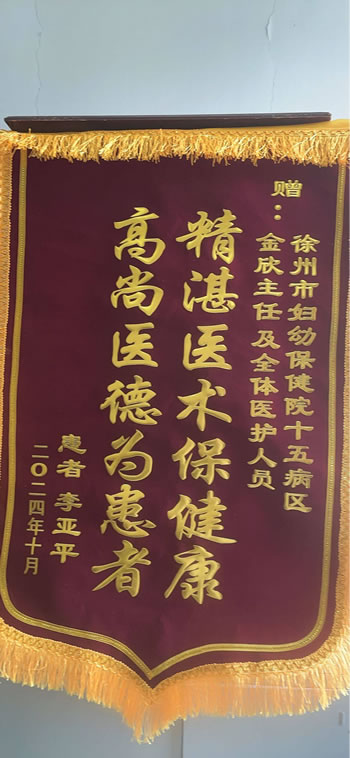 赠：
徐州市妇幼保健院十五病区
金欣主任及全体医护人员
精湛医术保健康
高尚医德为患者
患者 李亚平
二〇二四年十月